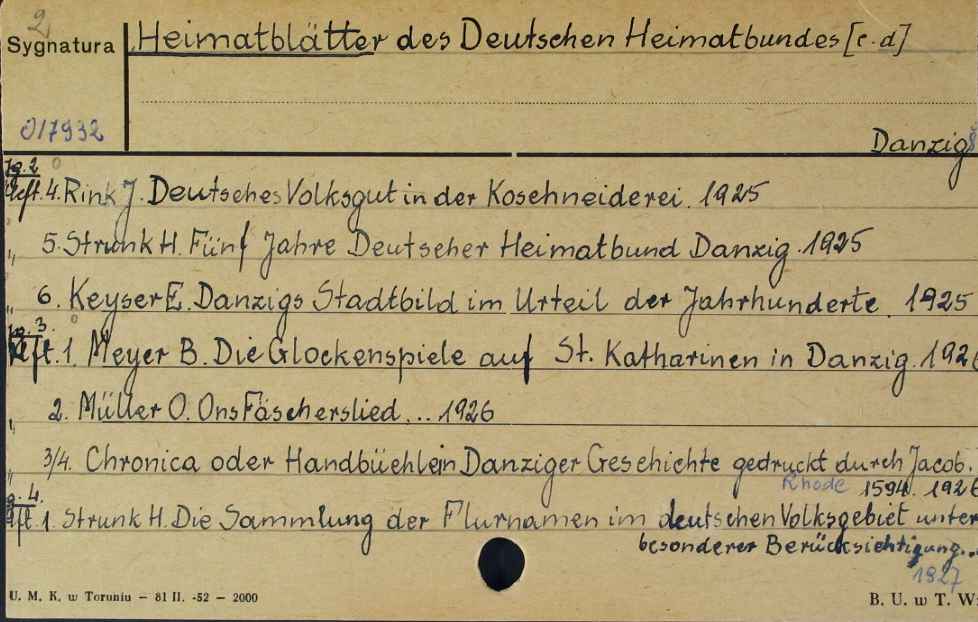 2
Sygnatura Heimatblätter des Deutschen Heimatbundes [c.d]
017932
Danzig
Jg. 2
Heft. 4. Rink J. Deutsches Volksgut in der Koschneiderei. 1925
„ 5. Strunk H. Fünf Jahre Deutscher Heimatbund Danzig. 1925
„ 6. Keyser E. Danzigs Stadtbild im Urteil der Jahrhunderte. 1925
Jg. 3.
Heft. 1. Meyer B. Die Glockenspiele auf St. Katharinen in Danzig. 1926
„ 2. Müller O. Ons Fäscherslied... 1926
„ 3/4. Chronica oder Handbüchlein Danziger Geschichte gedruckt durch Jacob.
Rhode 1594. 1926
Jg. 4.
Heft. 1. Strunk H. Die Sammlung der Flurnamen im deutschen Volksgebiet unter
besonderer Berücksichtigung...
1927
U. M. K. w Toruniu – 81 II. -52 – 2000
B. U. w T. W